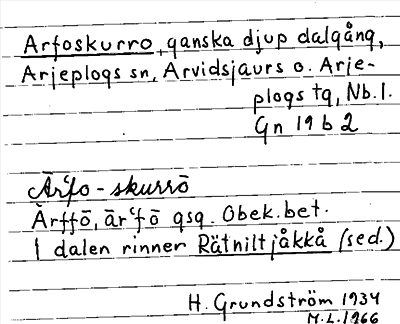 Arfoskurro, ganska djup dalgång,
Arjeplogs sn, Arvidsjaurs o. Arje-
plogs tg, Nb. l.
Gn 19 b 2
Är͑fo - skurrō
Ärffō, är͑fō gsg. Obek. bet.
I dalen rinner Rätniltjåkkå (sed.)
H. Grundström 1934
M.L. 1966